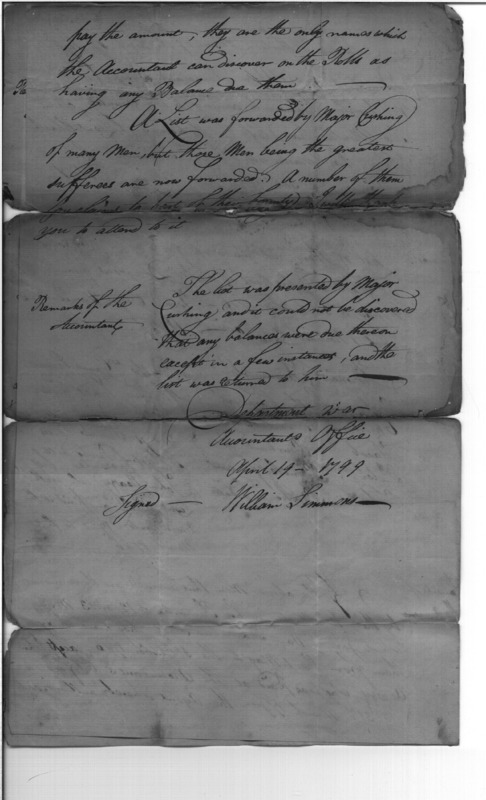 pay the amount, they are the only names which
the Accountant can discover on the Rolls as
having any Balance due them
A List was forwarded by Major Cushing
of many Men, but those Men being the greatest
sufferers are now forwarded. A number of them
you to attend to it
Remarks of the
Accountant
The list was presented by Major
Cushing and it could not be discovered
that any balances were due thereon
except in a few instances, and the
list was returned to him
Department War
Accountants Office
April 19 1799
Signed William Simmons